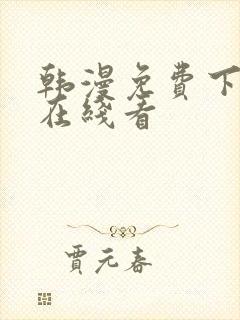 韩漫免费下
在线看
贾元春